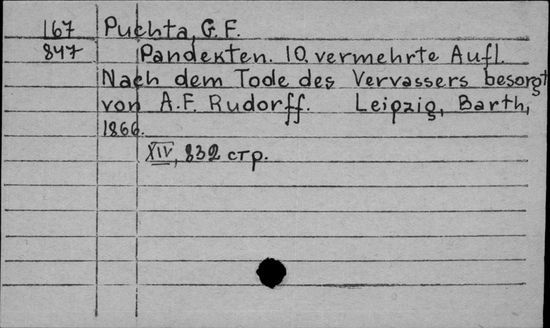 167 Puchta, G.F.
847 Pandekten. 10. vermehrte Aufl.
Nach dem Tode des Vervassers besorgt
von A.F. Rudorff. Leipzig, Barth,
1866.
XIV, 832 стр.